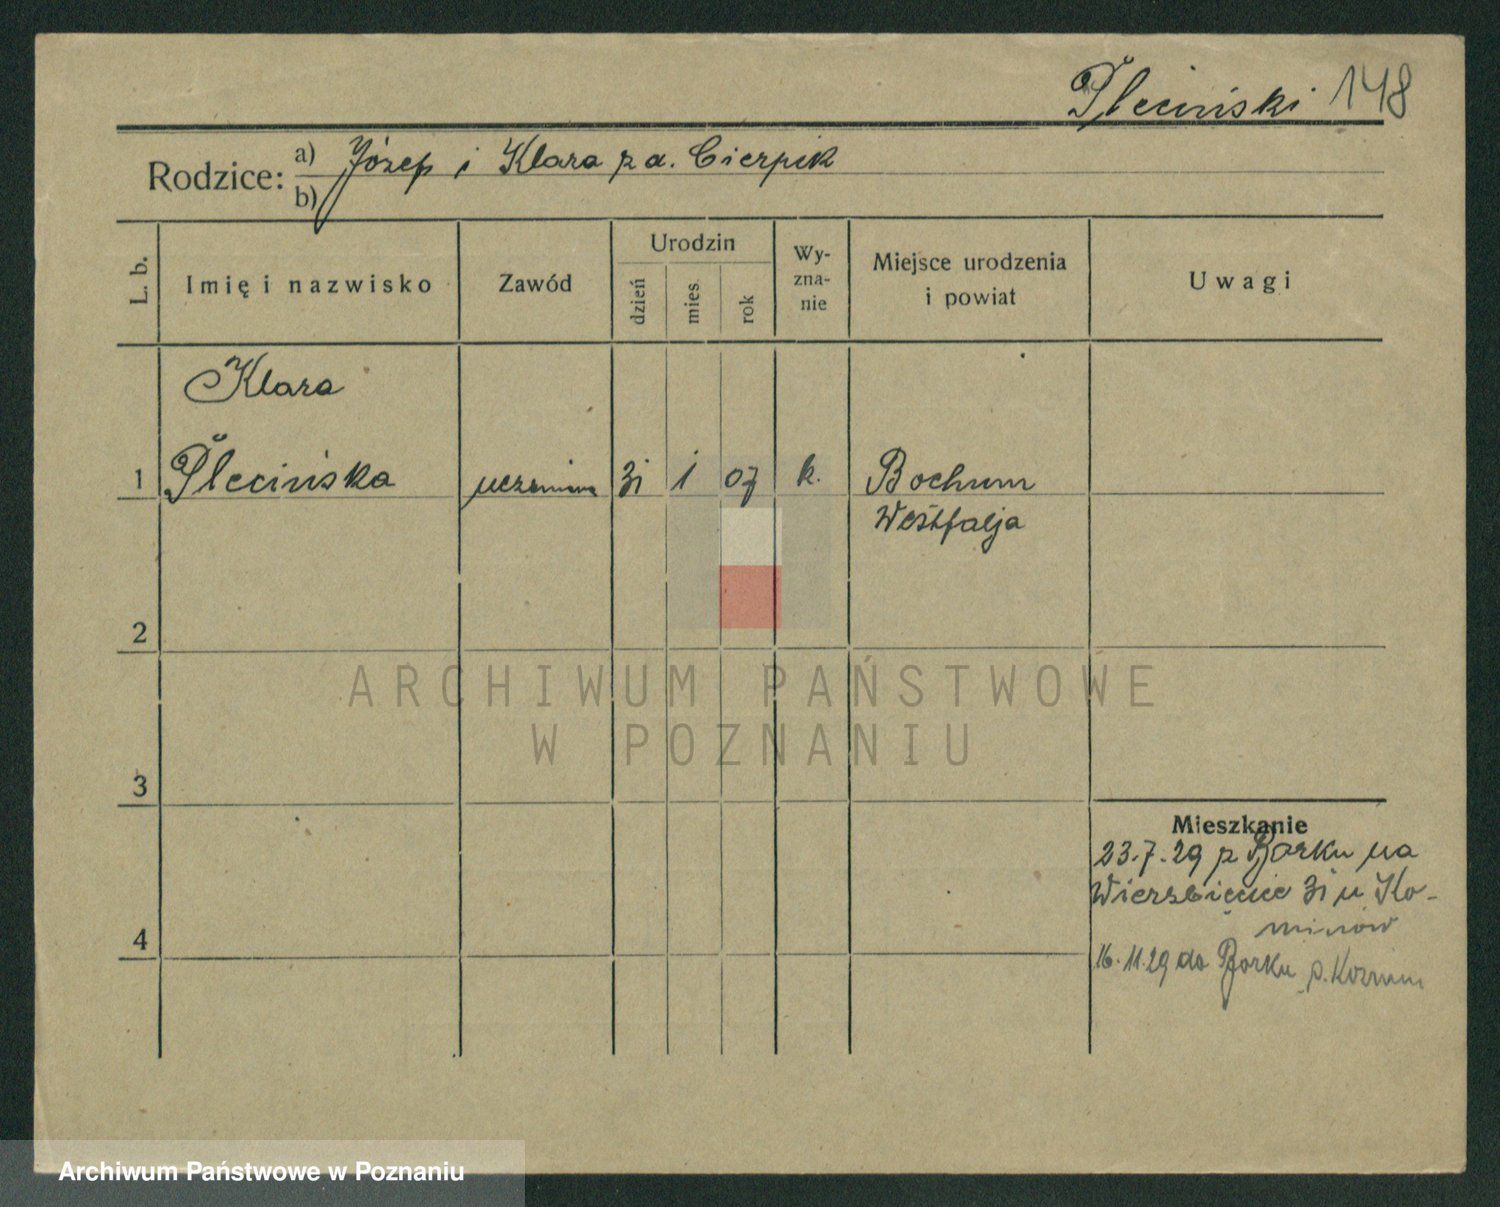 Pleciński 148
Rodzice: a) Józef i Klara z d. Cierpik
b)
L. b.
Imię i nazwisko
Zawód
Urodzin
dzień
mies.
rok
Wy-
zna-
nie
Miejsce urodzenia
i powiat
Uwagi
Klara
1 Plecińska uczennica 31 1 07 k. Bochum
Westfalja
2
ARCHIWUM PAŃSTWOWE
W POZNANIU
3
Mieszkanie
23.7.29 z Borku na
Wierzbięcice 31 u Ko-
minów
4
16.11.29 do Borku p.
Archiwum Państwowe w Poznaniu